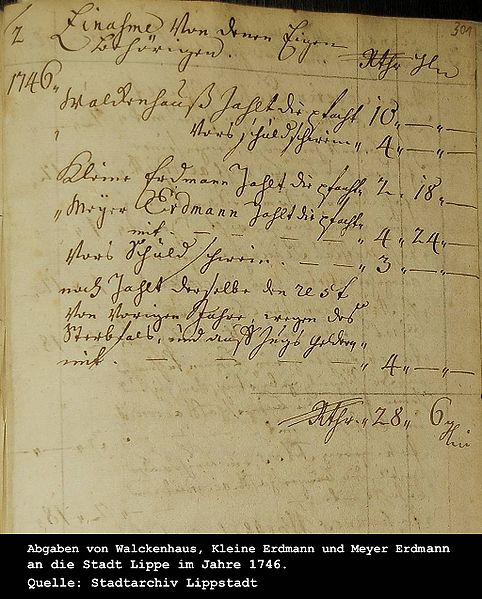 2
301
Einahme Von denen Eigen
behörigen.
Rthr
1746
Walckenhauß Zahlt die pfacht 10 „ — „ —
Vors schuldschwein „ 4 „ — „ —
Kleine Erdmann Zahlt die pfacht „ 2 „ 18 „ —
„ Meyer Erdmann Zahlt die pfacht „
mit . — — — — „ 4 „ 24 „ —
Vors Schuld schwein . — — „ 3 „ — „ —
noch Zahlt derselbe den
Von Vorigen Jahre, wegen des
Sterbfals, und
mit . — — — — „ 4 „ — „ —
Rthr „ 28 „ 6
Abgaben von Walckenhaus, Kleine Erdmann und Meyer Erdmann
an die Stadt Lippe im Jahre 1746.
Quelle: Stadtarchiv Lippstadt